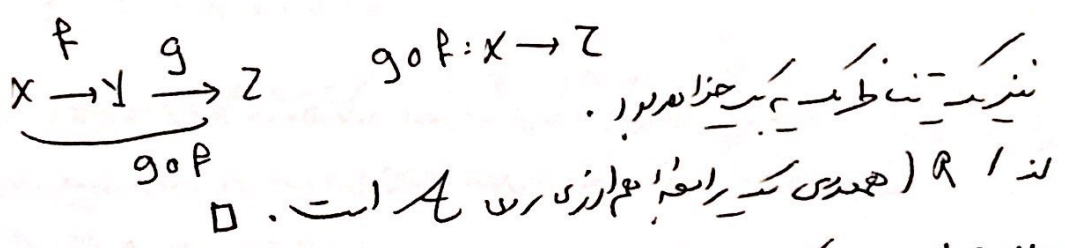 X →f Y →g Z    gof: X → Z
gof
نیز یک تناظر یک به یک خواهد بود.
لذا R (همعددی) یک رابطهٔ هم‌ارزی روی A است. □